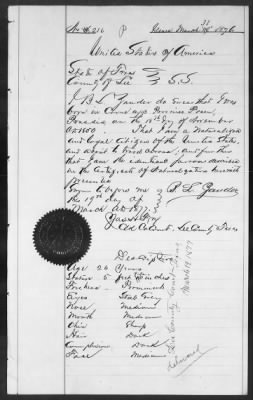 No 216 P Issued March 31st 1876
United States of America
State of Texas
County of Lee } S.S.
I B L Zander do swear that I was
born in
Prussia on the 18th day of November
1850. That I am a Naturalized
and loyal Citizen of the United States,
and about to travel abroad, and further
that I am the identical person described
in the Certificate of Naturalization herewith
presented
before me B. L. Zander
the 19th day of
March AD 1877
Clk Co Court, Lee County Texas
Description
Age 26 Years
Stature 5 feet Inches
Forehead Prominent
Eyes Grey
Nose Medium
Mouth Medium
Chin Sharp
Hair Dark
Complexion Dark
Face Medium
Lee County Court Texas
March 19 1877